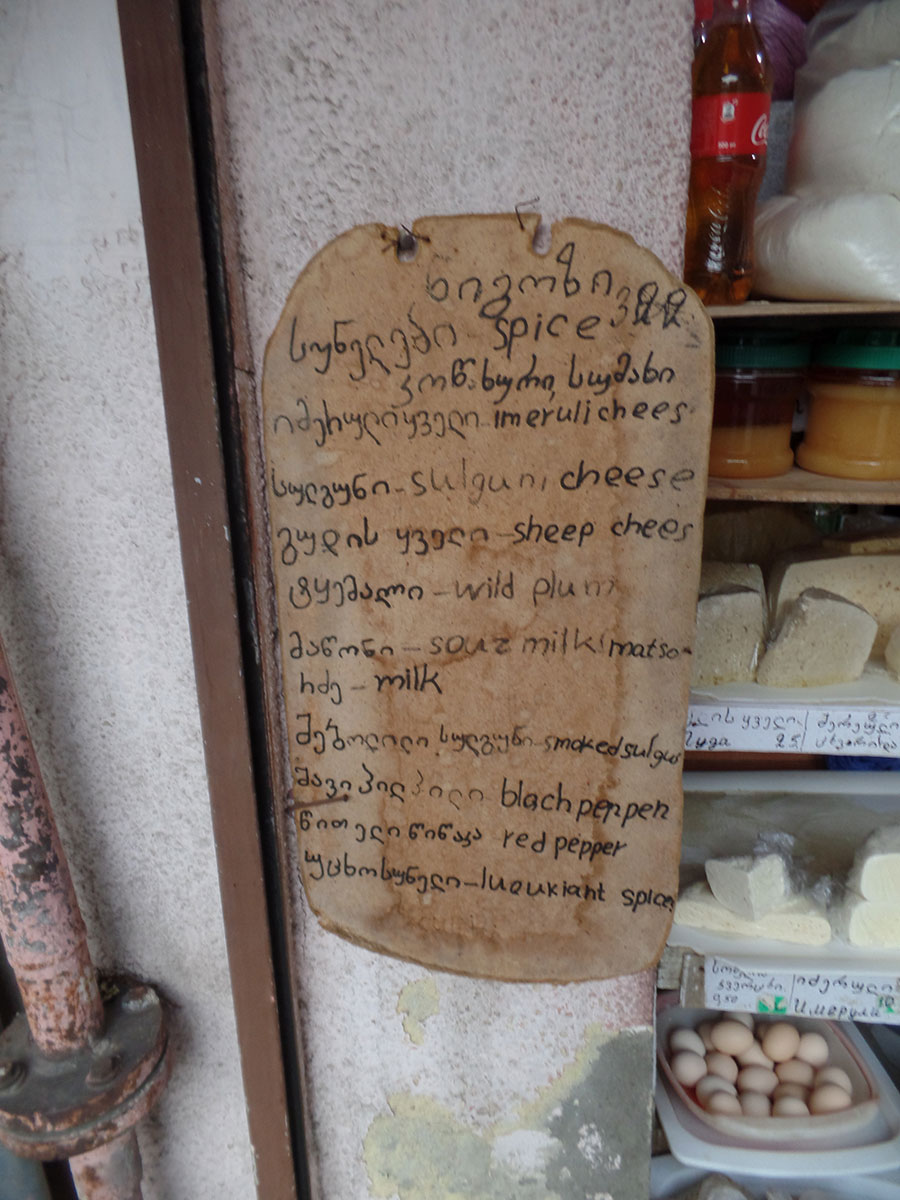 სუნელები - spice
კოწახური, სუმახი
იმერული ყველი - imeruli chees
სულგუნი - sulguni cheese
გუდის ყველი - sheep chees
ტყემალი - wild plum
მაწონი - sour milk matso-
რძე - milk
შებოლილი სულგუნი - smoked sulgu
შავი პილპილი blach pepper
წითელი წიწაკა red pepper
უცხო სუნელი - spice
ის ყველი
25
იმერული
Имерули